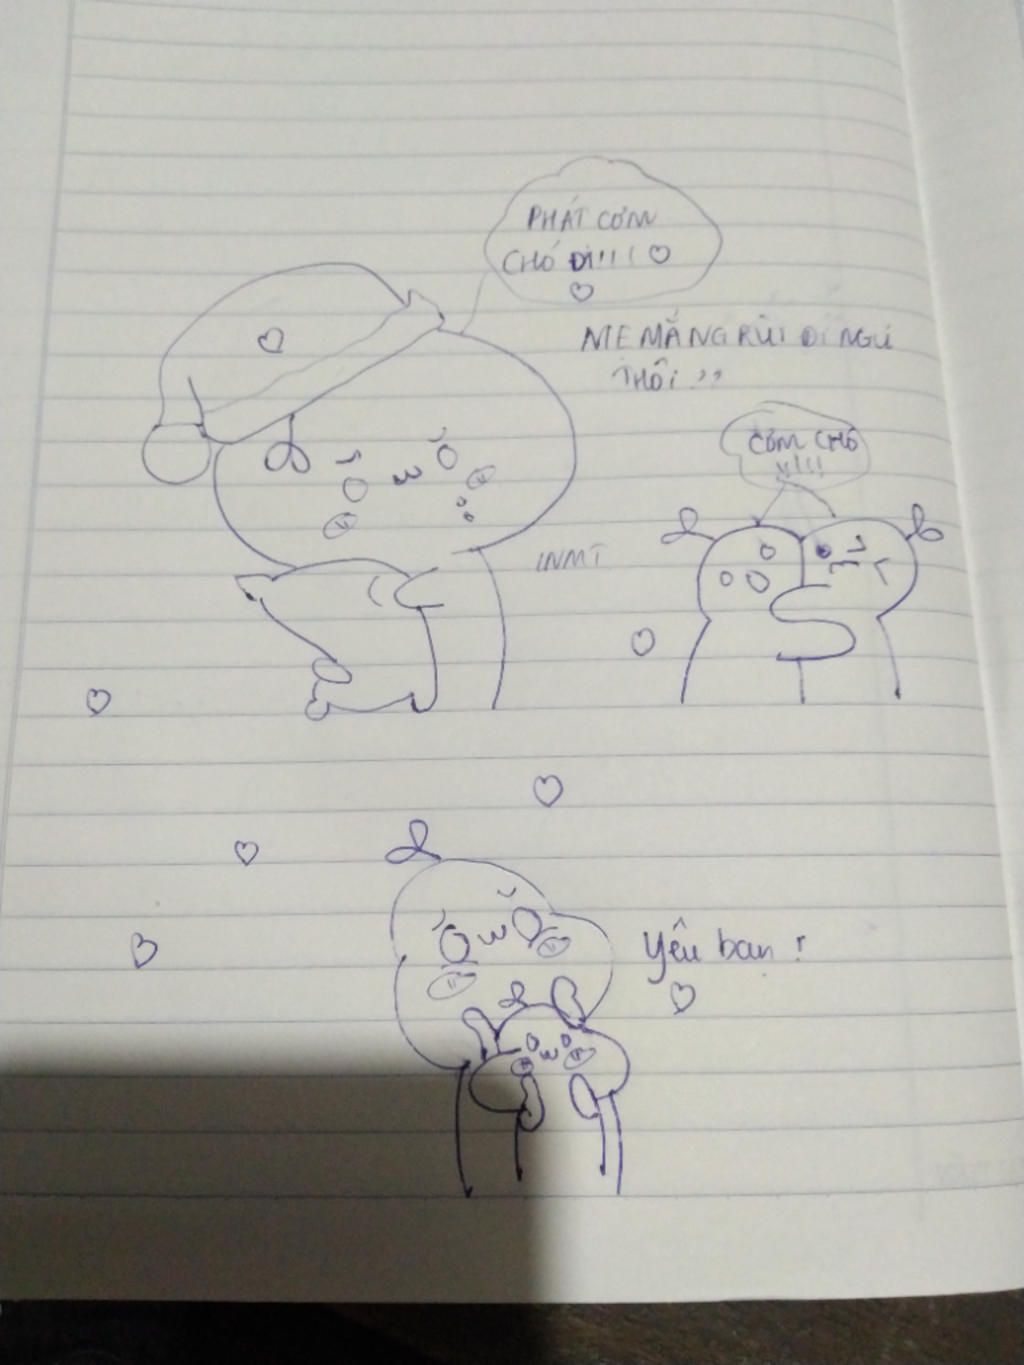 PHÁT CƠM
CHÓ ĐI!!!! ♡
♡
MẸ MẮNG RÙI ĐI NGỦ
THÔI ,,
CƠM CHÓ
!!!!!
INMT
Yêu bạn !
♡